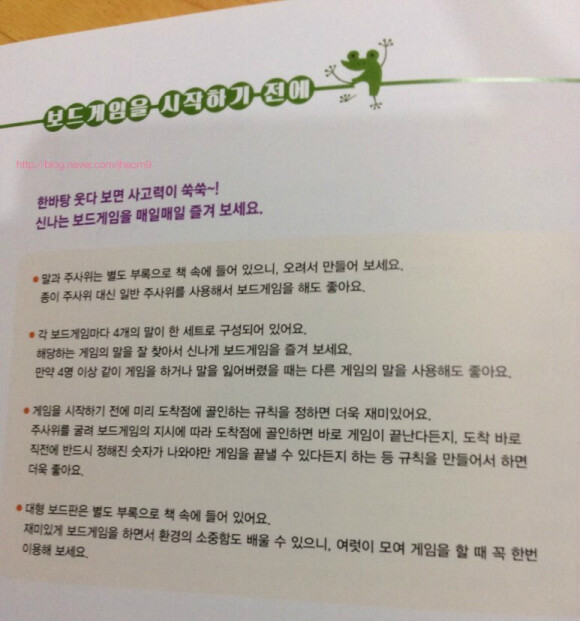 보드게임을 시작하기 전에
http://blog.naver.com/ihsom9
한바탕 웃다 보면 사고력이 쑥쑥~!
신나는 보드게임을 매일매일 즐겨 보세요.
• 말과 주사위는 별도 부록으로 책 속에 들어 있으니, 오려서 만들어 보세요.
종이 주사위 대신 일반 주사위를 사용해서 보드게임을 해도 좋아요.
• 각 보드게임마다 4개의 말이 한 세트로 구성되어 있어요.
해당하는 게임의 말을 잘 찾아서 신나게 보드게임을 즐겨 보세요.
만약 4명 이상 같이 게임을 하거나 말을 잃어버렸을 때는 다른 게임의 말을 사용해도 좋아요.
• 게임을 시작하기 전에 미리 도착점에 골인하는 규칙을 정하면 더욱 재미있어요.
주사위를 굴려 보드게임의 지시에 따라 도착점에 골인하면 바로 게임이 끝난다든지, 도착 바로
직전에 반드시 정해진 숫자가 나와야만 게임을 끝낼 수 있다든지 하는 등 규칙을 만들어서 하면
더욱 좋아요.
• 대형 보드판은 별도 부록으로 책 속에 들어 있어요.
재미있게 보드게임을 하면서 환경의 소중함도 배울 수 있으니, 여럿이 모여 게임을 할 때 꼭 한번
이용해 보세요.